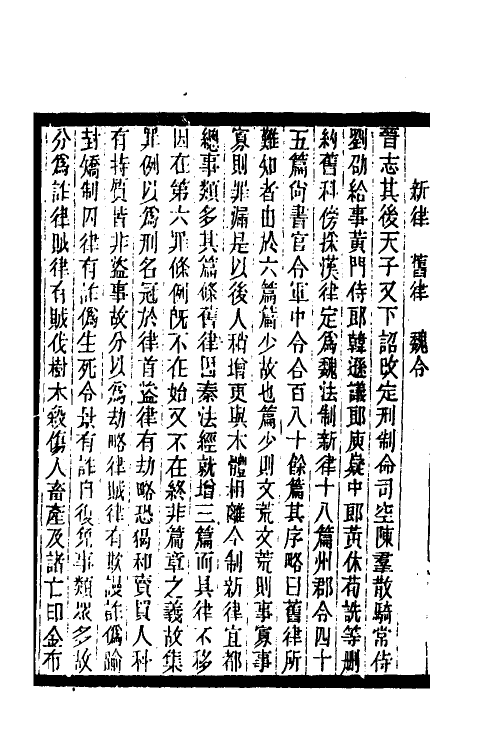 新律　舊律　魏令
晉志其後天子又下詔改定刑制命司空陳羣散騎常侍
劉邵給事黃門侍郎韓遜議郎庾嶷中郎黃休荀詵等刪
約舊科傍採漢律定爲魏法制新律十八篇州郡令四十
五篇尙書官令軍中令合百八十餘篇其序略曰舊律所
難知者由於六篇篇少故也篇少則文荒文荒則事寡事
寡則罪漏是以後人稍增更與本體相離今制新律宜都
總事類多其篇條舊律因秦法經就增三篇而具律不移
因在第六罪條例旣不在始又不在終非篇章之義故集
罪例以爲刑名冠於律首盜律有劫略恐猲和賣買人科
有持質皆非盜事故分以爲劫略律賊律有欺謾詐僞踰
封矯制囚律有詐僞生死令景有詐自復免事類眾多故
分爲詐律賊律有賊伐樹木殺傷人畜產及諸亡印金布